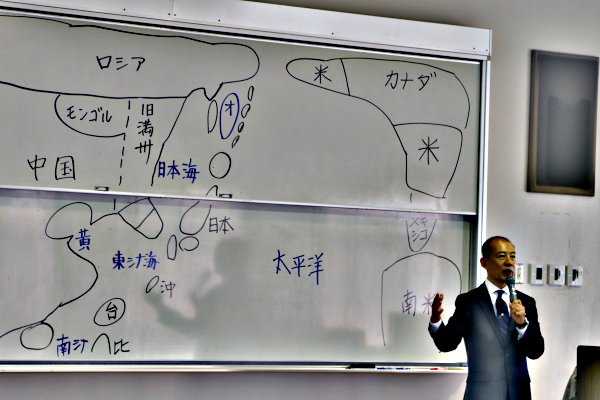 ロシア
米
カナダ
モンゴル
旧満州
オ
中国
日本海
米
日本
黄
東シナ海
太平洋
メキシコ
沖
台
南米
南シナ
比